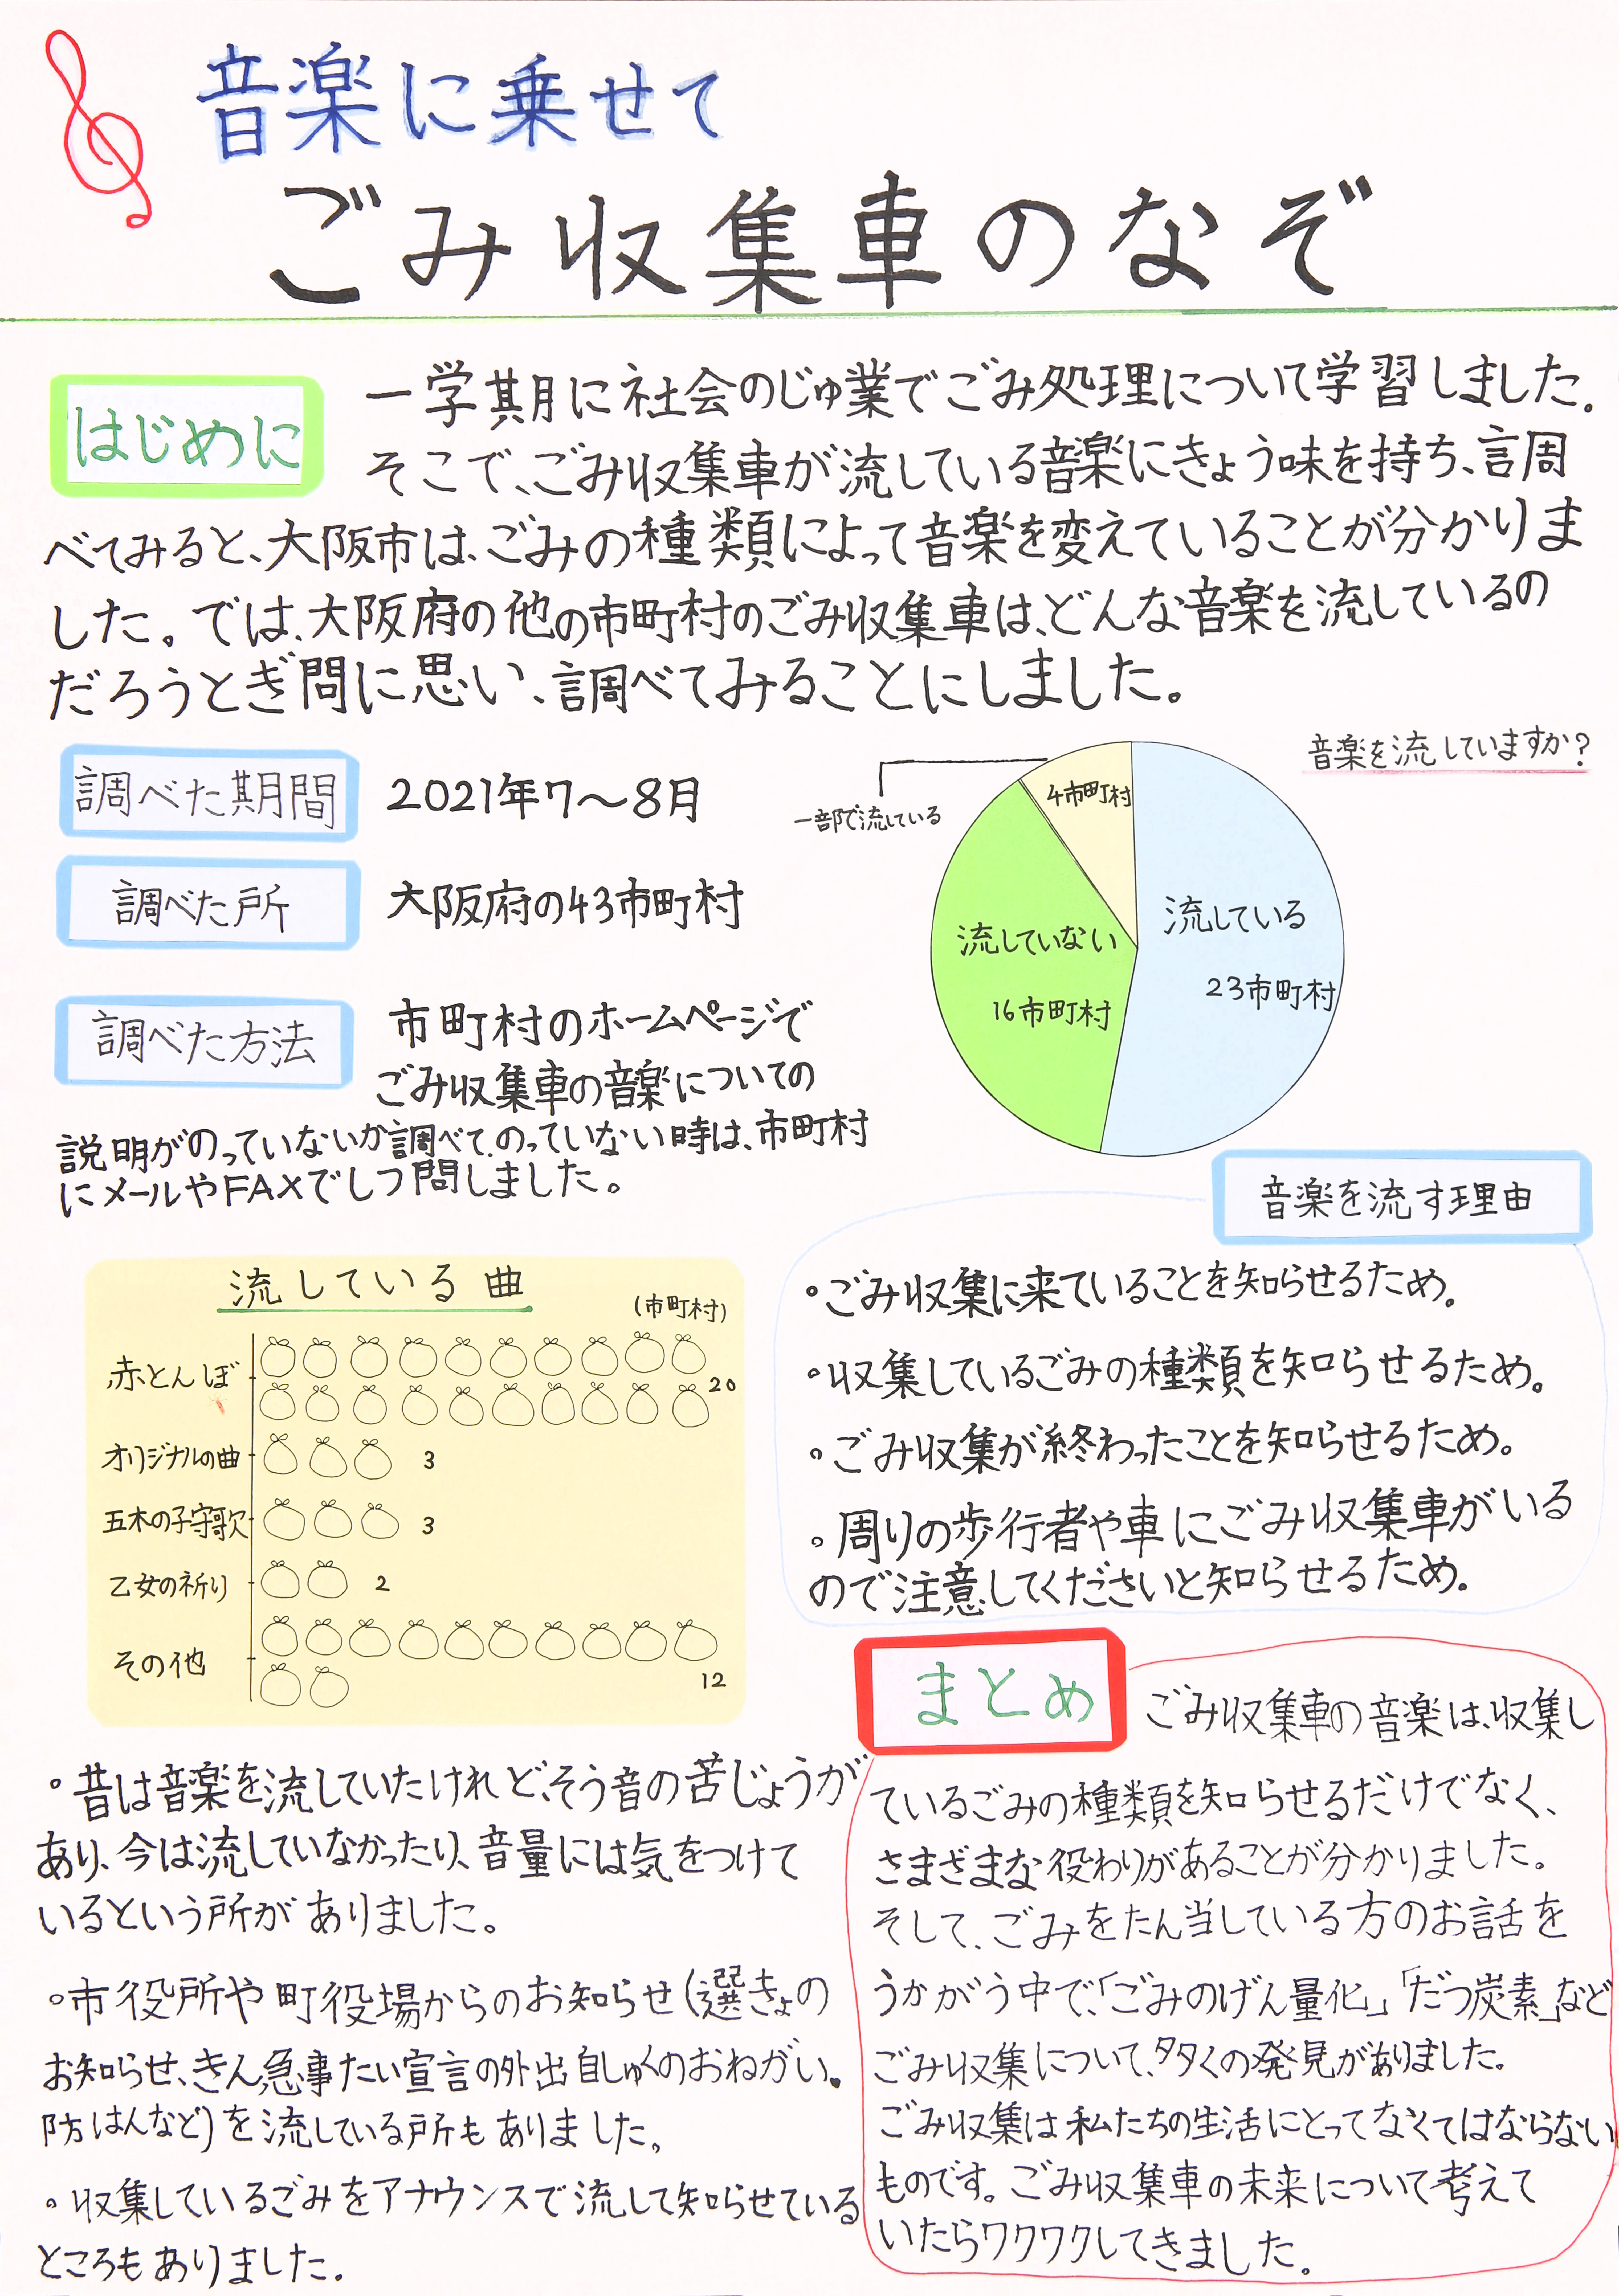 音楽に乗せて
ごみ収集車のなぞ
はじめに
一学期に社会のじゅ業でごみ処理について学習しました。
そこで、ごみ収集車が流している音楽にきょう味を持ち、調
べてみると、大阪市は、ごみの種類によって音楽を変えていることが分かりま
した。では、大阪府の他の市町村のごみ収集車は、どんな音楽を流しているの
だろうとぎ問に思い、調べてみることにしました。
調べた期間
2021年7〜8月
調べた所
大阪府の43市町村
調べた方法
市町村のホームページで
ごみ収集車の音楽についての
説明がのっていないか調べて、のっていない時は、市町村
にメールやFAXでしつ問しました。
音楽を流していますか？
一部で流している
4市町村
流している
23市町村
流していない
16市町村
音楽を流す理由
・ごみ収集に来ていることを知らせるため。
・収集しているごみの種類を知らせるため。
・ごみ収集が終わったことを知らせるため。
・周りの歩行者や車にごみ収集車がいる
ので注意してくださいと知らせるため。
流している曲
(市町村)
赤とんぼ
20
オリジナルの曲
3
五木の子守歌
3
乙女の祈り
2
その他
12
・昔は音楽を流していたけれど、そう音の苦じょうが
あり、今は流していなかったり、音量には気をつけて
いるという所がありました。
・市役所や町役場からのお知らせ(選きょの
お知らせ、きん急事たい宣言の外出自しゅくのおねがい。
防はんなど)を流している所もありました。
・収集しているごみをアナウンスで流して知らせている
ところもありました。
まとめ
ごみ収集車の音楽は、収集し
ているごみの種類を知らせるだけでなく、
さまざまな役わりがあることが分かりました。
そして、ごみをたん当している方のお話を
うかがう中で、「ごみのげん量化」「だつ炭素」など
ごみ収集について、多くの発見がありました。
ごみ収集は私たちの生活にとってなくてはならない
ものです。ごみ収集車の未来について考えて
いたらワクワクしてきました。